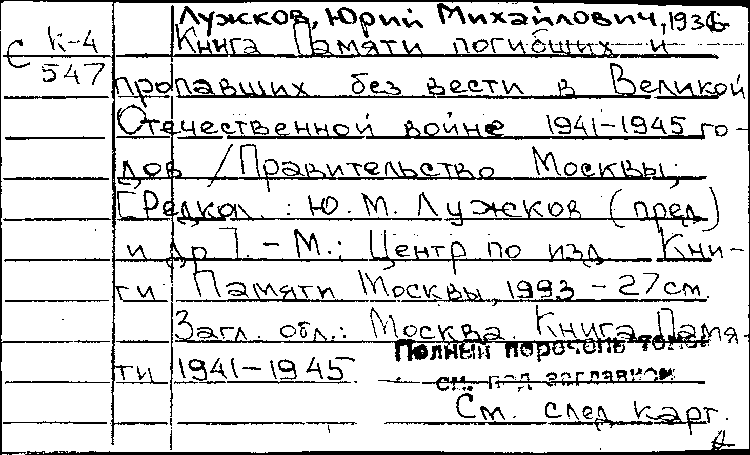 Лужков, Юрий Михайлович, 1936-
С К-4 547
Книга Памяти погибших и
пропавших без вести в Великой
Отечественной войне 1941-1945 го-
дов / Правительство Москвы;
[Редкол. : Ю.М. Лужков (пред)
и др]. - М.: Центр по изд Кни-
ги Памяти Москвы, 1993 - 27см
Загл. обл.: Москва. Книга Памя-
ти 1941-1945
Полный перечень томов
см. под заглавием
См. след карт.